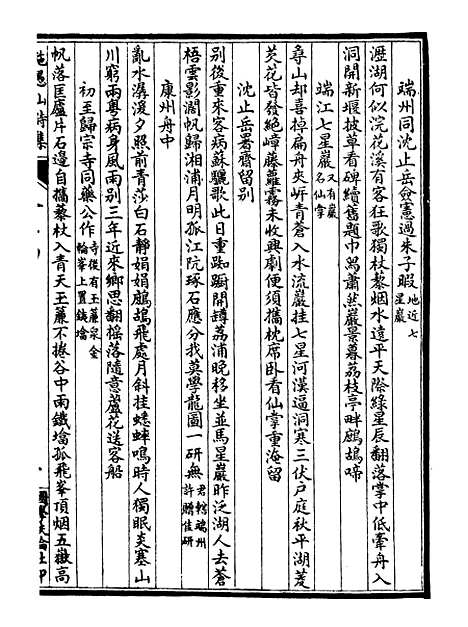 端州同沈止岳僉憲過朱子暇地近七星巖
瀝湖何似浣花溪有客狂歌獨杖藜烟水遠平天際綠星辰翻落掌中低牽舟入
洞開新堰披草看碑續舊題巾舄蕭然巖景暮荔枝亭畔鷓鴣啼
端江七星巖又有巖名仙掌
尋山却喜掉扁舟夾岍青蒼入水流巖挂七星河漢逼洞寒三伏戶庭秋平湖菱
芡花皆發絶嶂藤蘿霧未收興劇便須攜枕席卧看仙掌重淹留
沈止岳署齋留别
别後重來客病蘇驪歌此日重踟蹰開罇荔浦晚移坐並馬星巖昨泛湖人去蒼
梧雲影濶帆歸湘浦月明孤江阮琢石應分我莫學龍圖一研無君轄端州許贈佳研
康州舟中
亂水潺湲夕照前青沙白石靜娟娟鷓鴣飛處月斜挂蟋蟀鳴時人獨眠炎塞山
川窮兩粵病身風雨别三年近來鄉思翻摇落隨意蘆花送客船
初至歸宗寺同藥公作寺後有玉簾泉金輪峯上置鐵墖
帆落匡廬片石邊自攜藜杖入青天玉簾不捲谷中雨鐵墖孤飛峯頂烟五嶽高